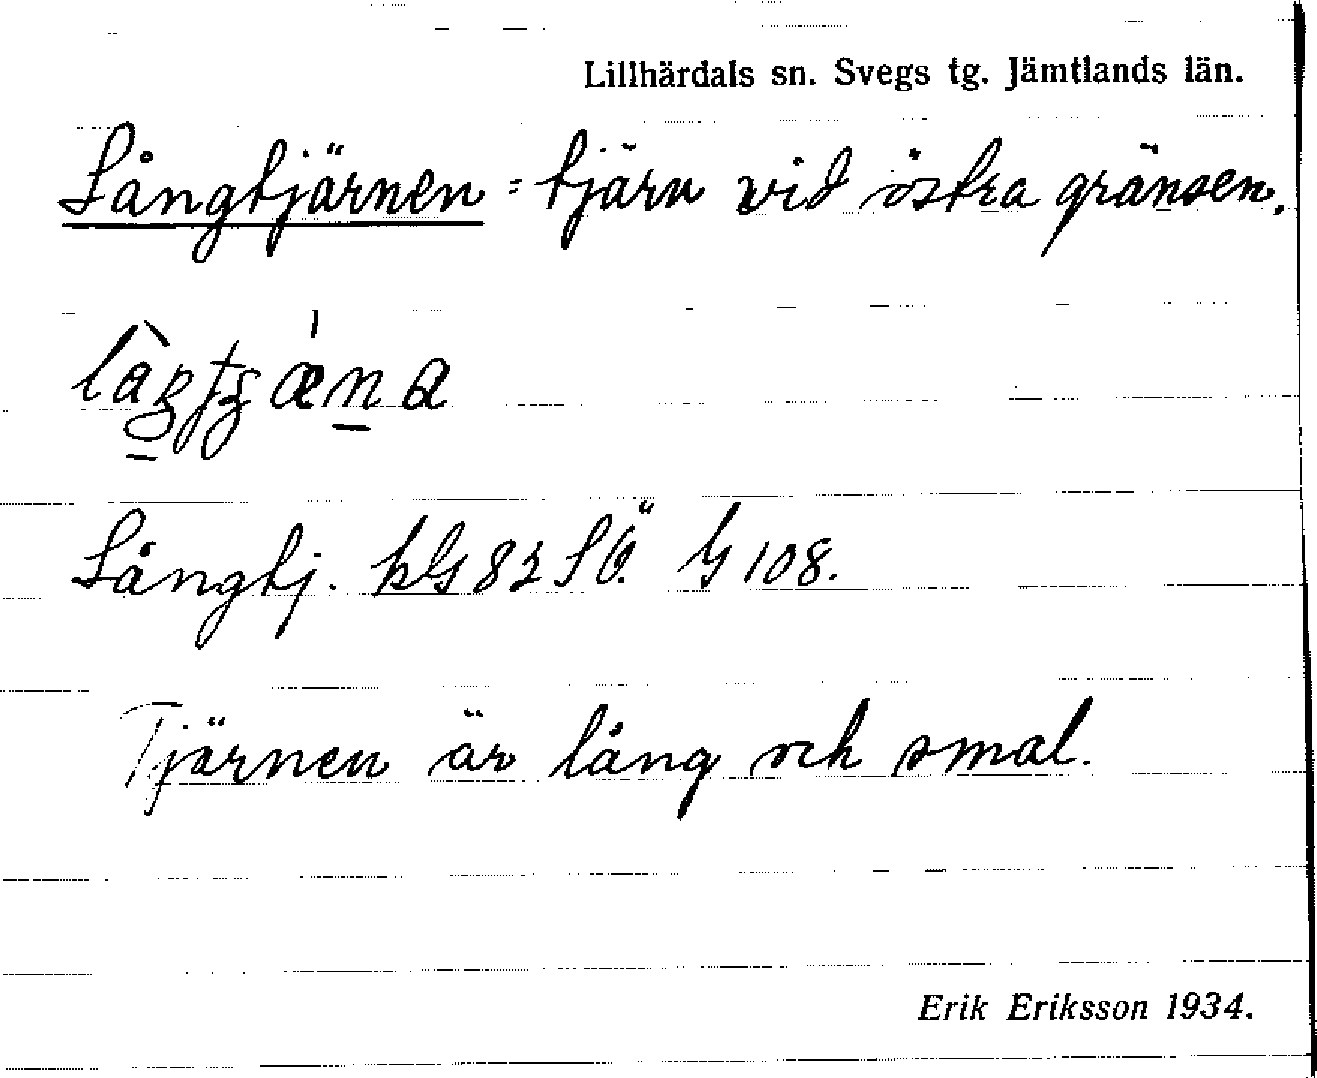 Lillhärdals sn. Svegs tg. Jämtlands län.
Långtjärnen = tjärn vid östra gränsen.
Långtj. kG 82 SÖ. G 108.
Tjärnen är lång och smal.
Erik Eriksson 1934.